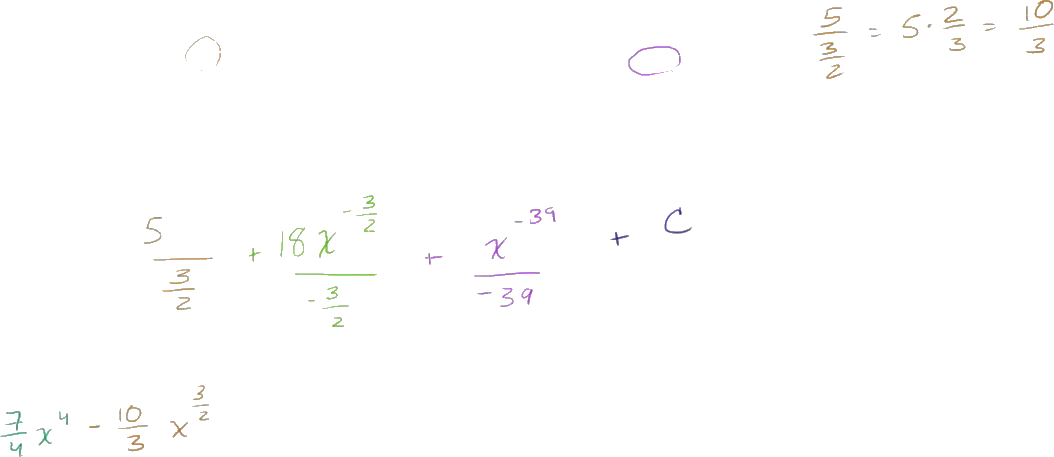 5/(3/2) = 5 · 2/3 = 10/3
5/(3/2) + 18x^(-3/2)/(-3/2) + x^(-39)/(-39) + C
7/4 x^4 - 10/3 x^(3/2)